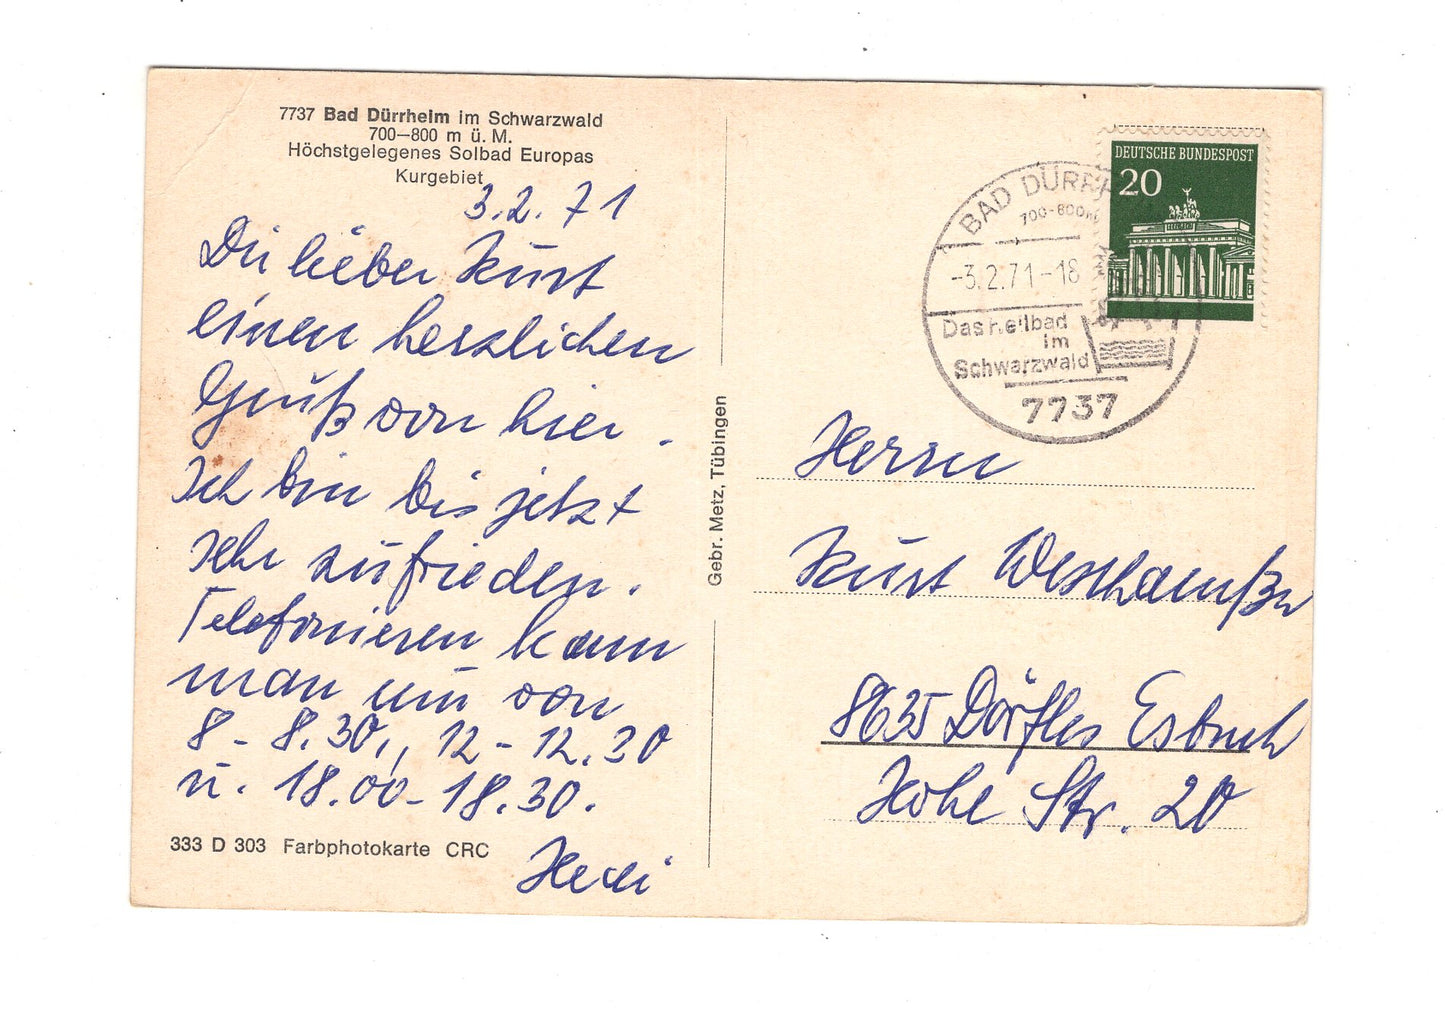 7737 Bad Dürrheim im Schwarzwald
700—800 m ü. M.
Höchstgelegenes Solbad Europas
Kurgebiet
3.2.71
Du lieber Kurt
einen herzlichen
Gruß von hier.
Ich bin bis jetzt
sehr zufrieden.
Telefonieren kann
man nur von
8 - 8.30, 12 - 12.30
u. 18.00 - 18.30.
333 D 303 Farbphotokarte CRC
Gebr. Metz, Tübingen
DEUTSCHE BUNDESPOST
20
BAD DÜRRH
700-800m
-3.2.71-18
Das Heilbad
im
Schwarzwald
7737
Herrn
Kurt
8635 Dörfles Esbach
Hohe Str. 20